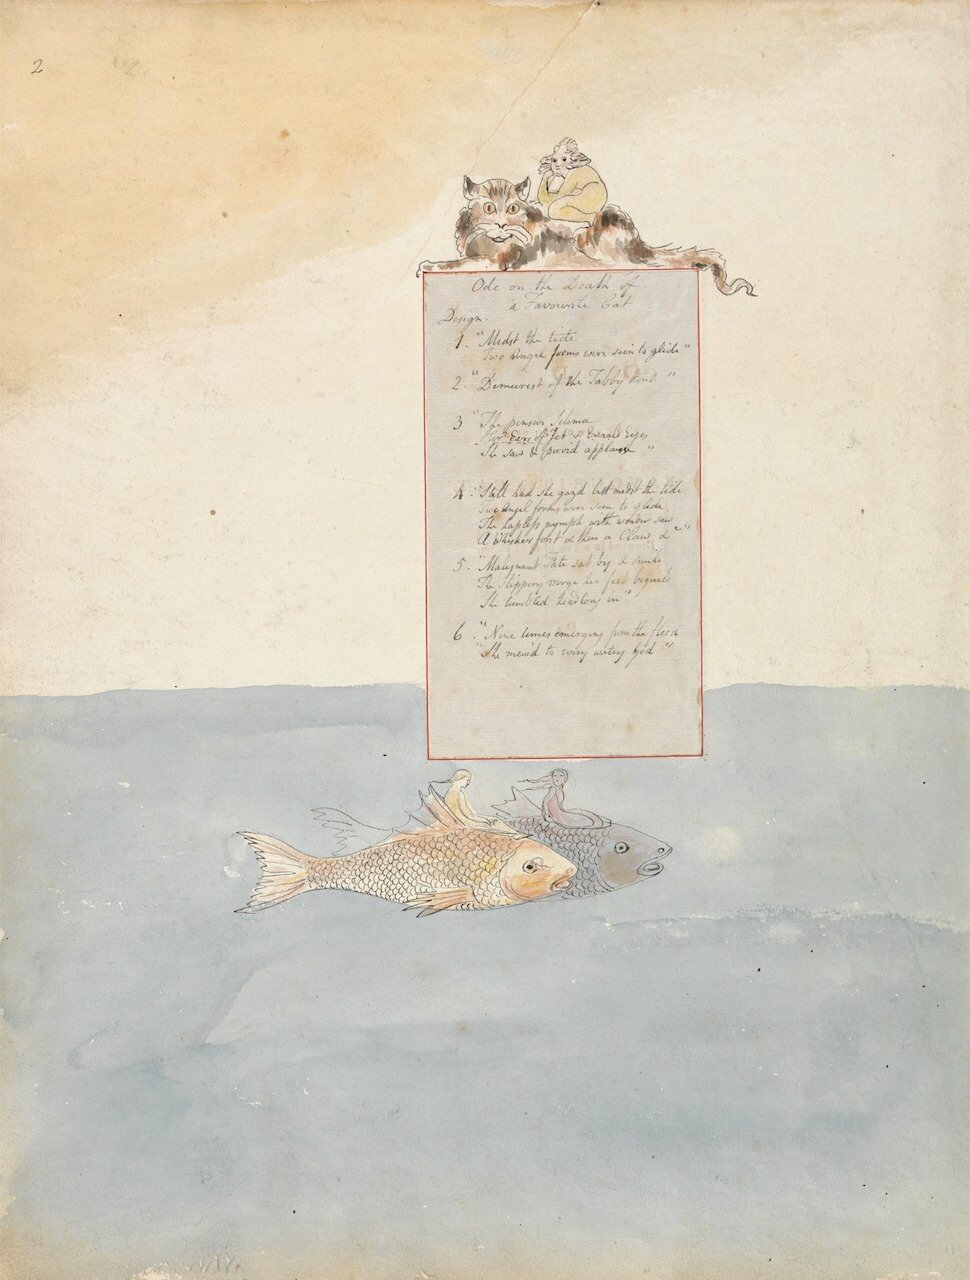 2
Ode on the Death of
a Favourite Cat
Design.
1. "Midst the tide
Two Angel forms were seen to glide"
2. "Demurest of the Tabby Kind"
3 "The pensive Selima
Her Ears of Jet & Emrald Eyes
She saw & purrd applause"
4. "Still had she gazd but midst the tide
two Angel forms were seen to glide
The hapless nymph with wonder saw
A Whisker first & then a Claw &c"
5. "Malignant Fate sat by & smild
The slippery verge her feet beguild
She tumbled headlong in"
6. "Nine times emerging from the flood
"She mewd to every watry God"